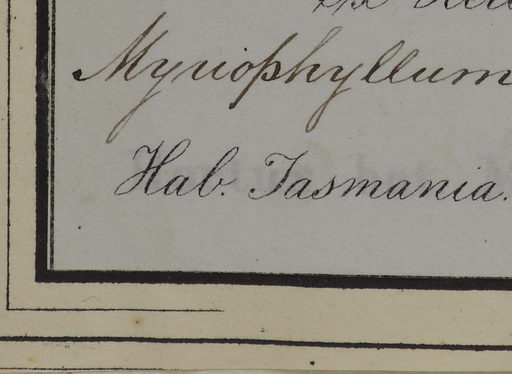 Myriophyllum
Hab. Tasmania.